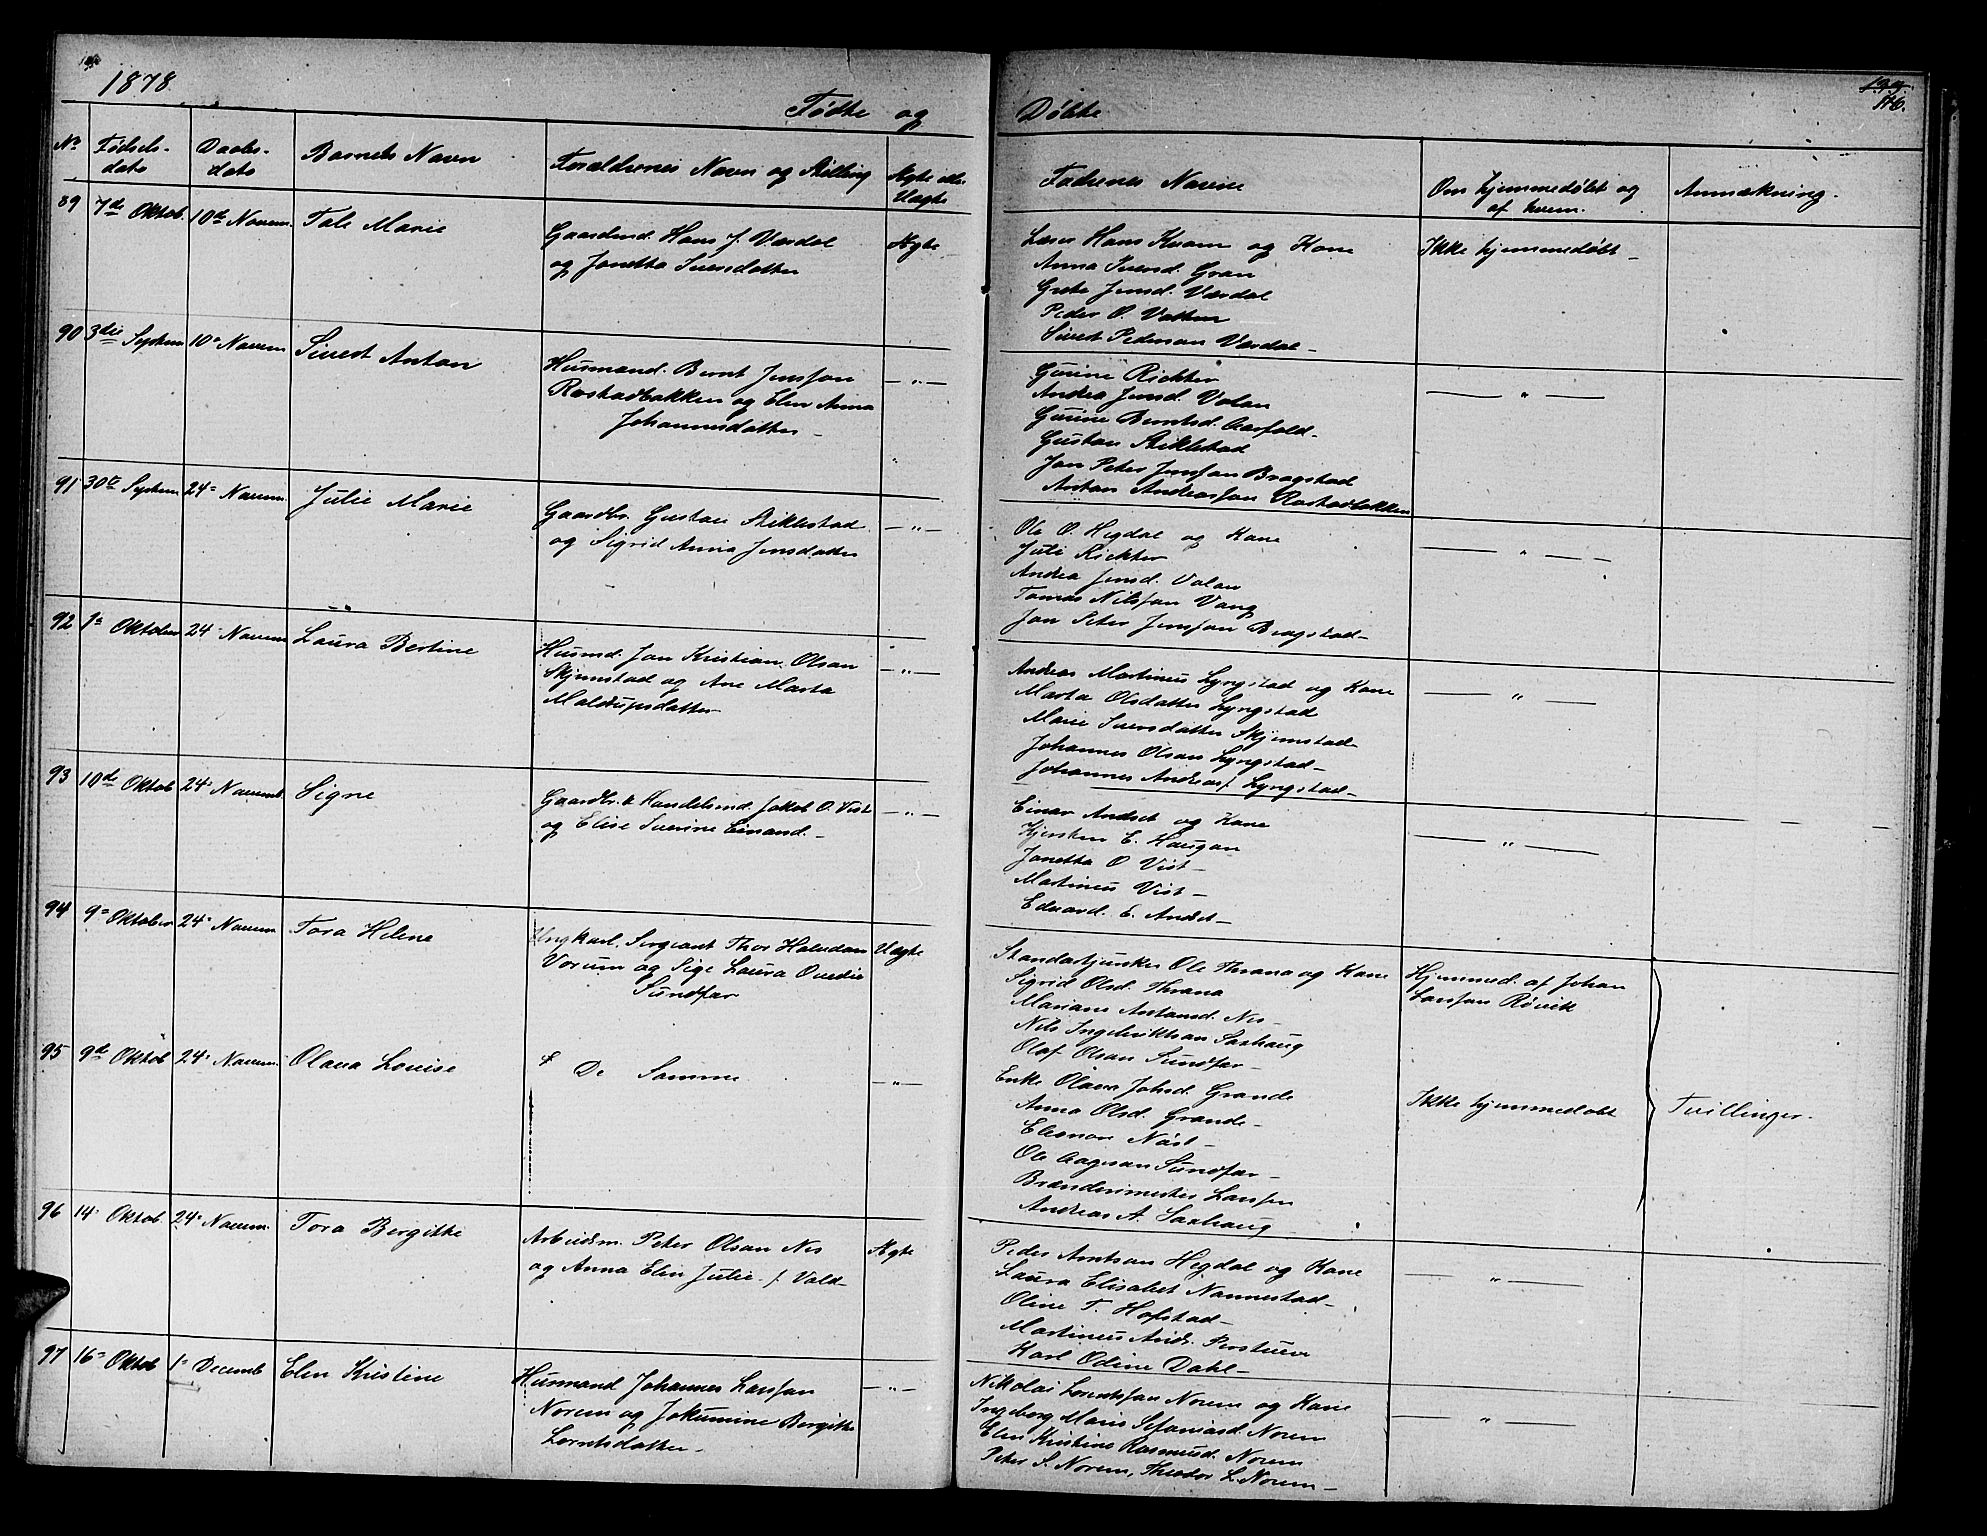 1878
Fødte og
Døbte
116.
No
Fødsels-
dato
Daabs-
dato
Barnets Navn
Forældrenes Navn og Stilling
Ægte eller
Uægte
Faddernes Navne
Om hjemmedøbt og
af hvem.
Anmærkning.
89 7de Oktob. 10de Novem. Tale Marie
Gaardmd. Hans J. Værdal
og Janetta Suensdatter
Ægte
Hans Kvam og Kone
Anna Suensd. Gran
Grete Jensd. Værdal
Peder O. Vatten
Sivert Pedersen Værdal
Ikke hjemmedøbt
90 3die Septem 10 Novem Sivert Anton
Husmand. Bernt Jensen
Rostadbakken og Elen Anna
Johannesdatter
— " —
Gurine Richter
Andrea Jensd. Volan
Gurine Berntsd. Aarfald
Gustav Stiklestad
Jon Peter Jensen Bragstad
Anton Andreassen Rostadbakken
— " —
91 30te Septem 24 Novem. Julie Marie
Gaardbr. Gustav Stiklestad
og Sigrid Anna Jensdatter
— " —
Ole O. Hegdal og Kone
Juli Richter
Andrea Jensd. Volan
Tomas Nilssen Vang
Jon Peter Jenssen Bragstad
— " —
92 1 Oktober 24 Novem Laura Bertine
Husmd. Jon Kristian Olsen
Skjemstad og Ane Marta
— " —
Andreas Martinus Lyngstad og Kone
Marta Olsdatter Lyngstad
Marie Suensdatter Skjemstad
Johannes Olsen Lyngstad
Johannes Andreas. Lyngstad
— " —
93 10de Oktob 24 Novemb Signe
Gaardbr. & Handelsmd. Jakob O. Vist
og Elise Suerine Einarsd.
— " —
Einar Andset og Kone
Kjersten E. Haugan
Janetta O Vist
Martinus Vist
Edvard. E. Andst
— " —
94 9 Oktober 24 Novem Tora Helene
Ungkarl. Sergeant Thor Halvdan
Vorum og Pige Laura Ovedie
Sundfar
Uægte
Standartjunker Ole Thrana og Kone
Sigrid Olsd. Thrana
Mariane Arntsd. Nes
Nils Ingebriktsen Saxhaug
Olaf Olsen Sundfar
Hjemmed. af Johan
Larssen Røvik
95 9de Oktob 24 Novem. Olava Louise
De Samme
— " —
Enke Olava Johsd. Grande
Anna Olsd. Grande
Eleonore Nøst
Ole Aagesen Sundfar
Brænderimester Larssen
Andreas A. Saxhaug
Ikke hjemmedøbt
Tvillinger.
96 14 Oktob. 24 Novem. Tora Bergitte
Arbeidsm. Peter Olsen Nes
og Anna Elen Julie f. Vold
Ægte
Peder Arntsen Hegdal og Kone
Laura Elisabet Nannestad
Oline T. Hofstad
Martinus Andr. Perstuen
Karl Odine Dahl
— " —
97 16 Oktob 1 Decemb Elen Kristine
Husmand Johannes Larssen
Norem og Jokumine Bergitte
Lorntsdatter
— " —
Nikolai Lorntssen Norem og Kone
Ingeborg Marie Stefaniasd. Norem
Elen Kristine Rasmusd. Norem
Peter S. Norem, Theodor L. Norem
— " —